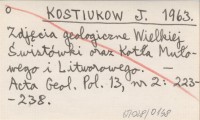 o KOSTIUKOW J. 1963.
Zdjęcia geologiczne Wielkiej
Świstówki oraz Kotła Muło-
wego i Litworowego. —
Acta Geol. Pol. 13, nr 2: 223-
-238.